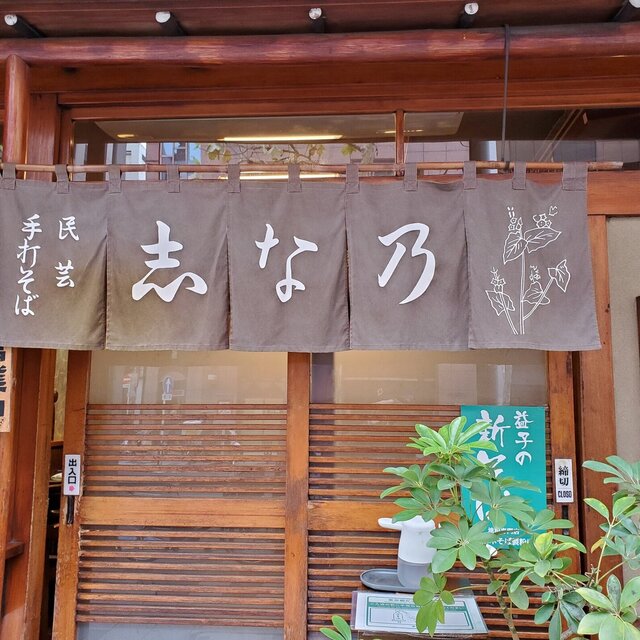 民芸
手打そば
志な乃
出入口
益子の
新そば
締切
CLOSE